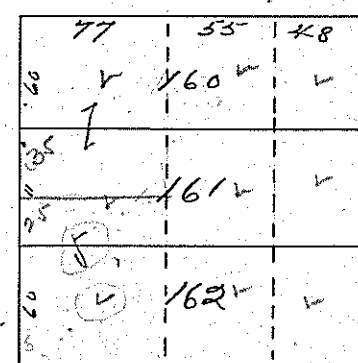 77 55 48
60 160
35
161
25
60 162